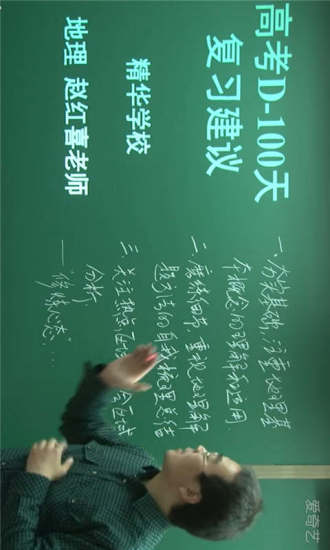 高考D-100天
复习建议
精华学校
地理 赵红喜老师
一、夯实基础，注重地理基
本概念的理解和应用.
二、磨练细节，重视地理解
题方法的自我梳理总结
三、关注热点
分析
——修炼心态…
爱奇艺